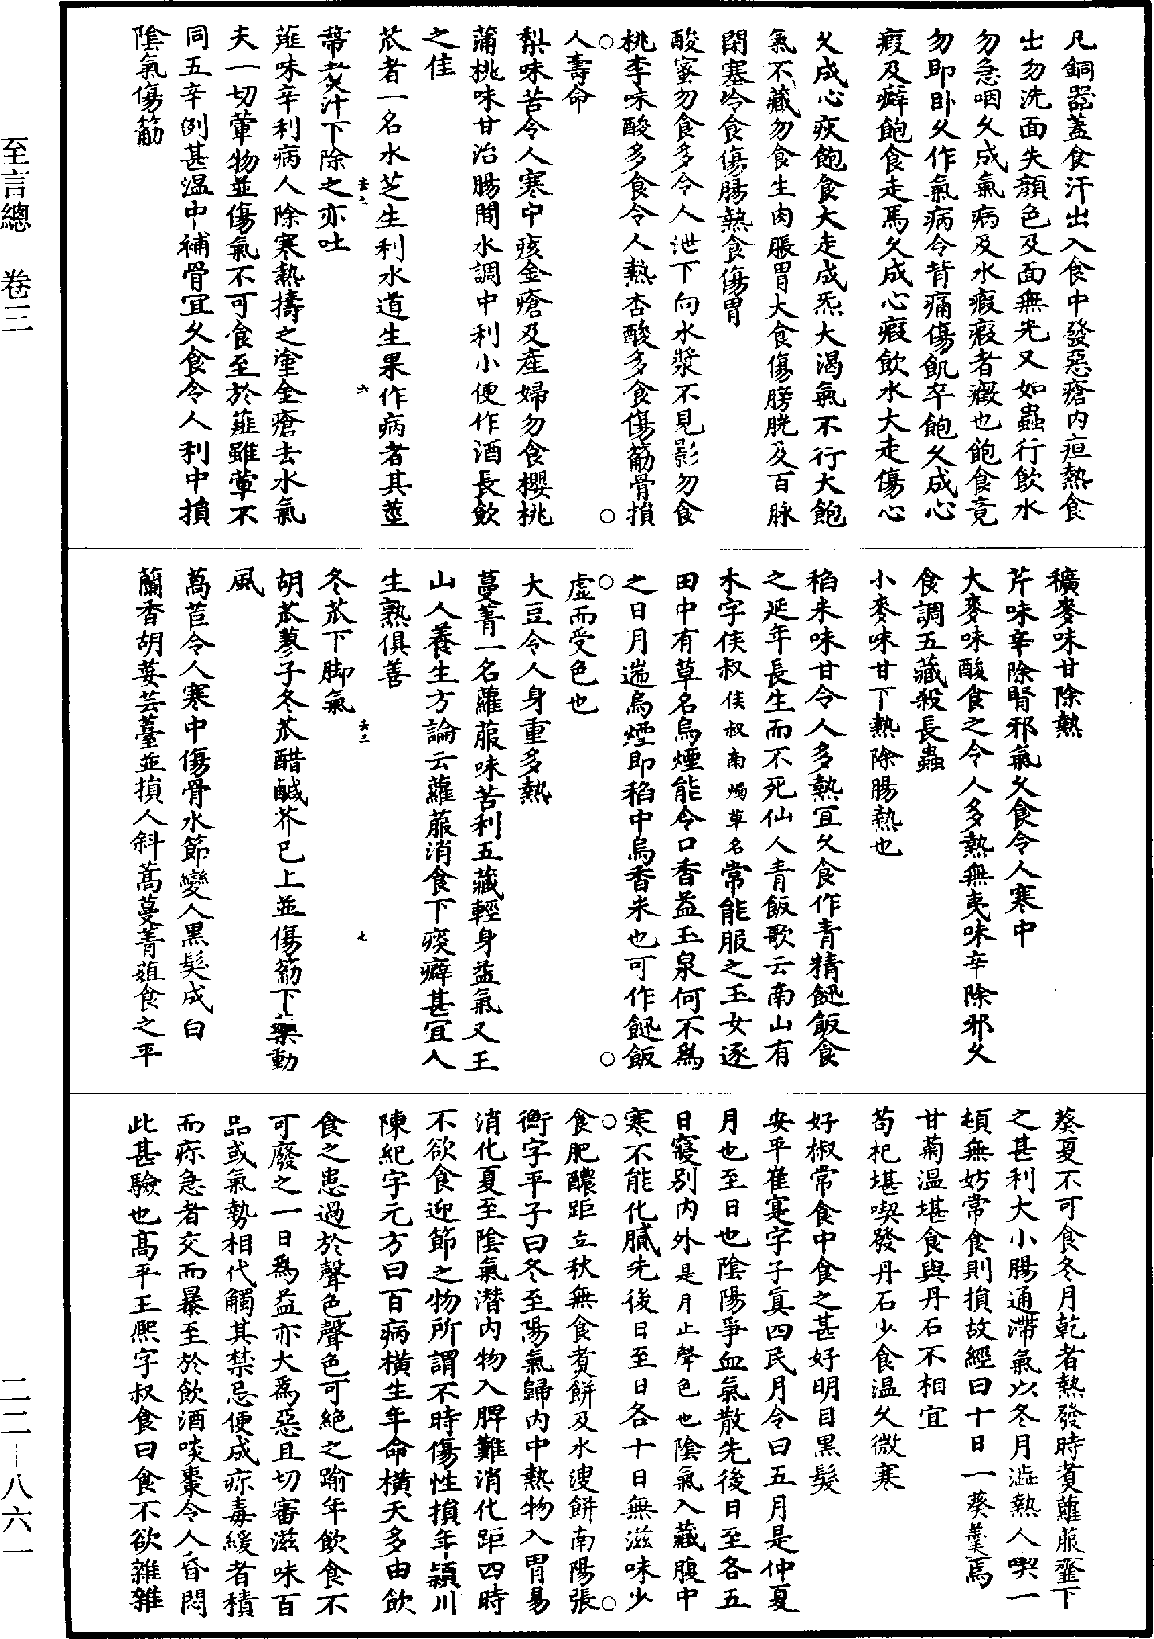 凡銅器蓋食汗出入食中發惡瘡內疸熱食
出勿洗面失顏色及面無光又如蟲行飲水
勿急咽久成氣病及水瘕瘕者癥也飽食竟
勿即卧久作氣病令背痛傷飢卒飽久成心
瘕及癖飽食走馬久成心瘕飲水大走傷心
久成心疾飽食大走成炁大渴氣不行大飽
氣不藏勿食生肉脹胃大食傷膀胱及百脉
閉塞冷食傷腸熱食傷胃
酸蜜勿食多令人泄下向水漿不見影勿食
桃李味酸多食令人熱杏酸多食傷筋骨損
人壽命
梨味苦令人寒中痎金瘡及産婦勿食櫻桃
蒲桃味甘治腸間水調中利小便作酒長飲
之佳
苽者一名水芝生利水道生果作病者其莖
蔕煑汁下除之亦吐
薤味辛利病人除寒熱擣之塗金瘡去水氣
夫一切葷物並傷氣不可食至於薤雖葷不
同五辛例甚温中補骨宜久食令人利中損
陰氣傷筋
穬麥味甘除熱
芹味辛除腎邪氣久食令人寒中
大麥味酸食之令人多熱無夷味辛除邪久
食調五藏殺長蟲
小麥味甘下熱除腸熱也
稻米味甘令人多熱宜久食作青精飿飯食
之延年長生而不死仙人青飯歌云南山有
木字侯叔侯叔南燭草名常能服之玉女逐
田中有草名烏煙能令口香益玉泉何不爲
之日月遄烏煙即稻中烏香米也可作飿飯
虛而受色也
大豆令人身重多熱
蔓菁一名蘿菔味苦利五藏輕身益氣又王
山人養生方論云蘿菔消食下痰癖甚宜人
生熟俱善
冬苽下脚氣
胡苽蓼子冬苽醋鹹芥已上並傷筋下藥動
風
萵苣令人寒中傷骨水節變人黒髮成白
蘭香胡荽芸薹並損人斜蒿蔓菁葅食之平
葵夏不可食冬月乾者熱發時煑蘿菔虀下
之甚利大小腸通滯氣以冬月澁熱人喫一
頓無妨常食則損故經曰十日一葵羹焉
甘菊温堪食與丹石不相宜
苟杞堪喫發丹石少食温久微寒
好椒常食中食之甚好明目黒髮
安平崔寔字子真四民月令曰五月是仲夏
月也至日也陰陽爭血氣散先後日至各五
日寢别內外是月止聲色也陰氣入藏腹中
寒不能化膩先後日至日各十日無滋味少
食肥醲距立秋無食煑餅及水溲餅南陽張
衡字平子曰冬至陽氣歸內中熱物入胃易
消化夏至陰氣潛內物入脾難消化距四時
不欲食迎節之物所謂不時傷性損年潁川
陳紀字元方曰百病橫生年命橫夭多由飲
食之患過於聲色聲色可絶之踰年飲食不
可廢之一日爲益亦大爲惡且切審滋味百
品或氣勢相代觸其禁忌便成疢毒緩者積
而疢急者交而暴至於飲酒啖棗令人昏悶
此甚驗也高平王熈字叔食曰食不欲雜雜
去二
六
去二
七
至言總　卷三
二二—八六一